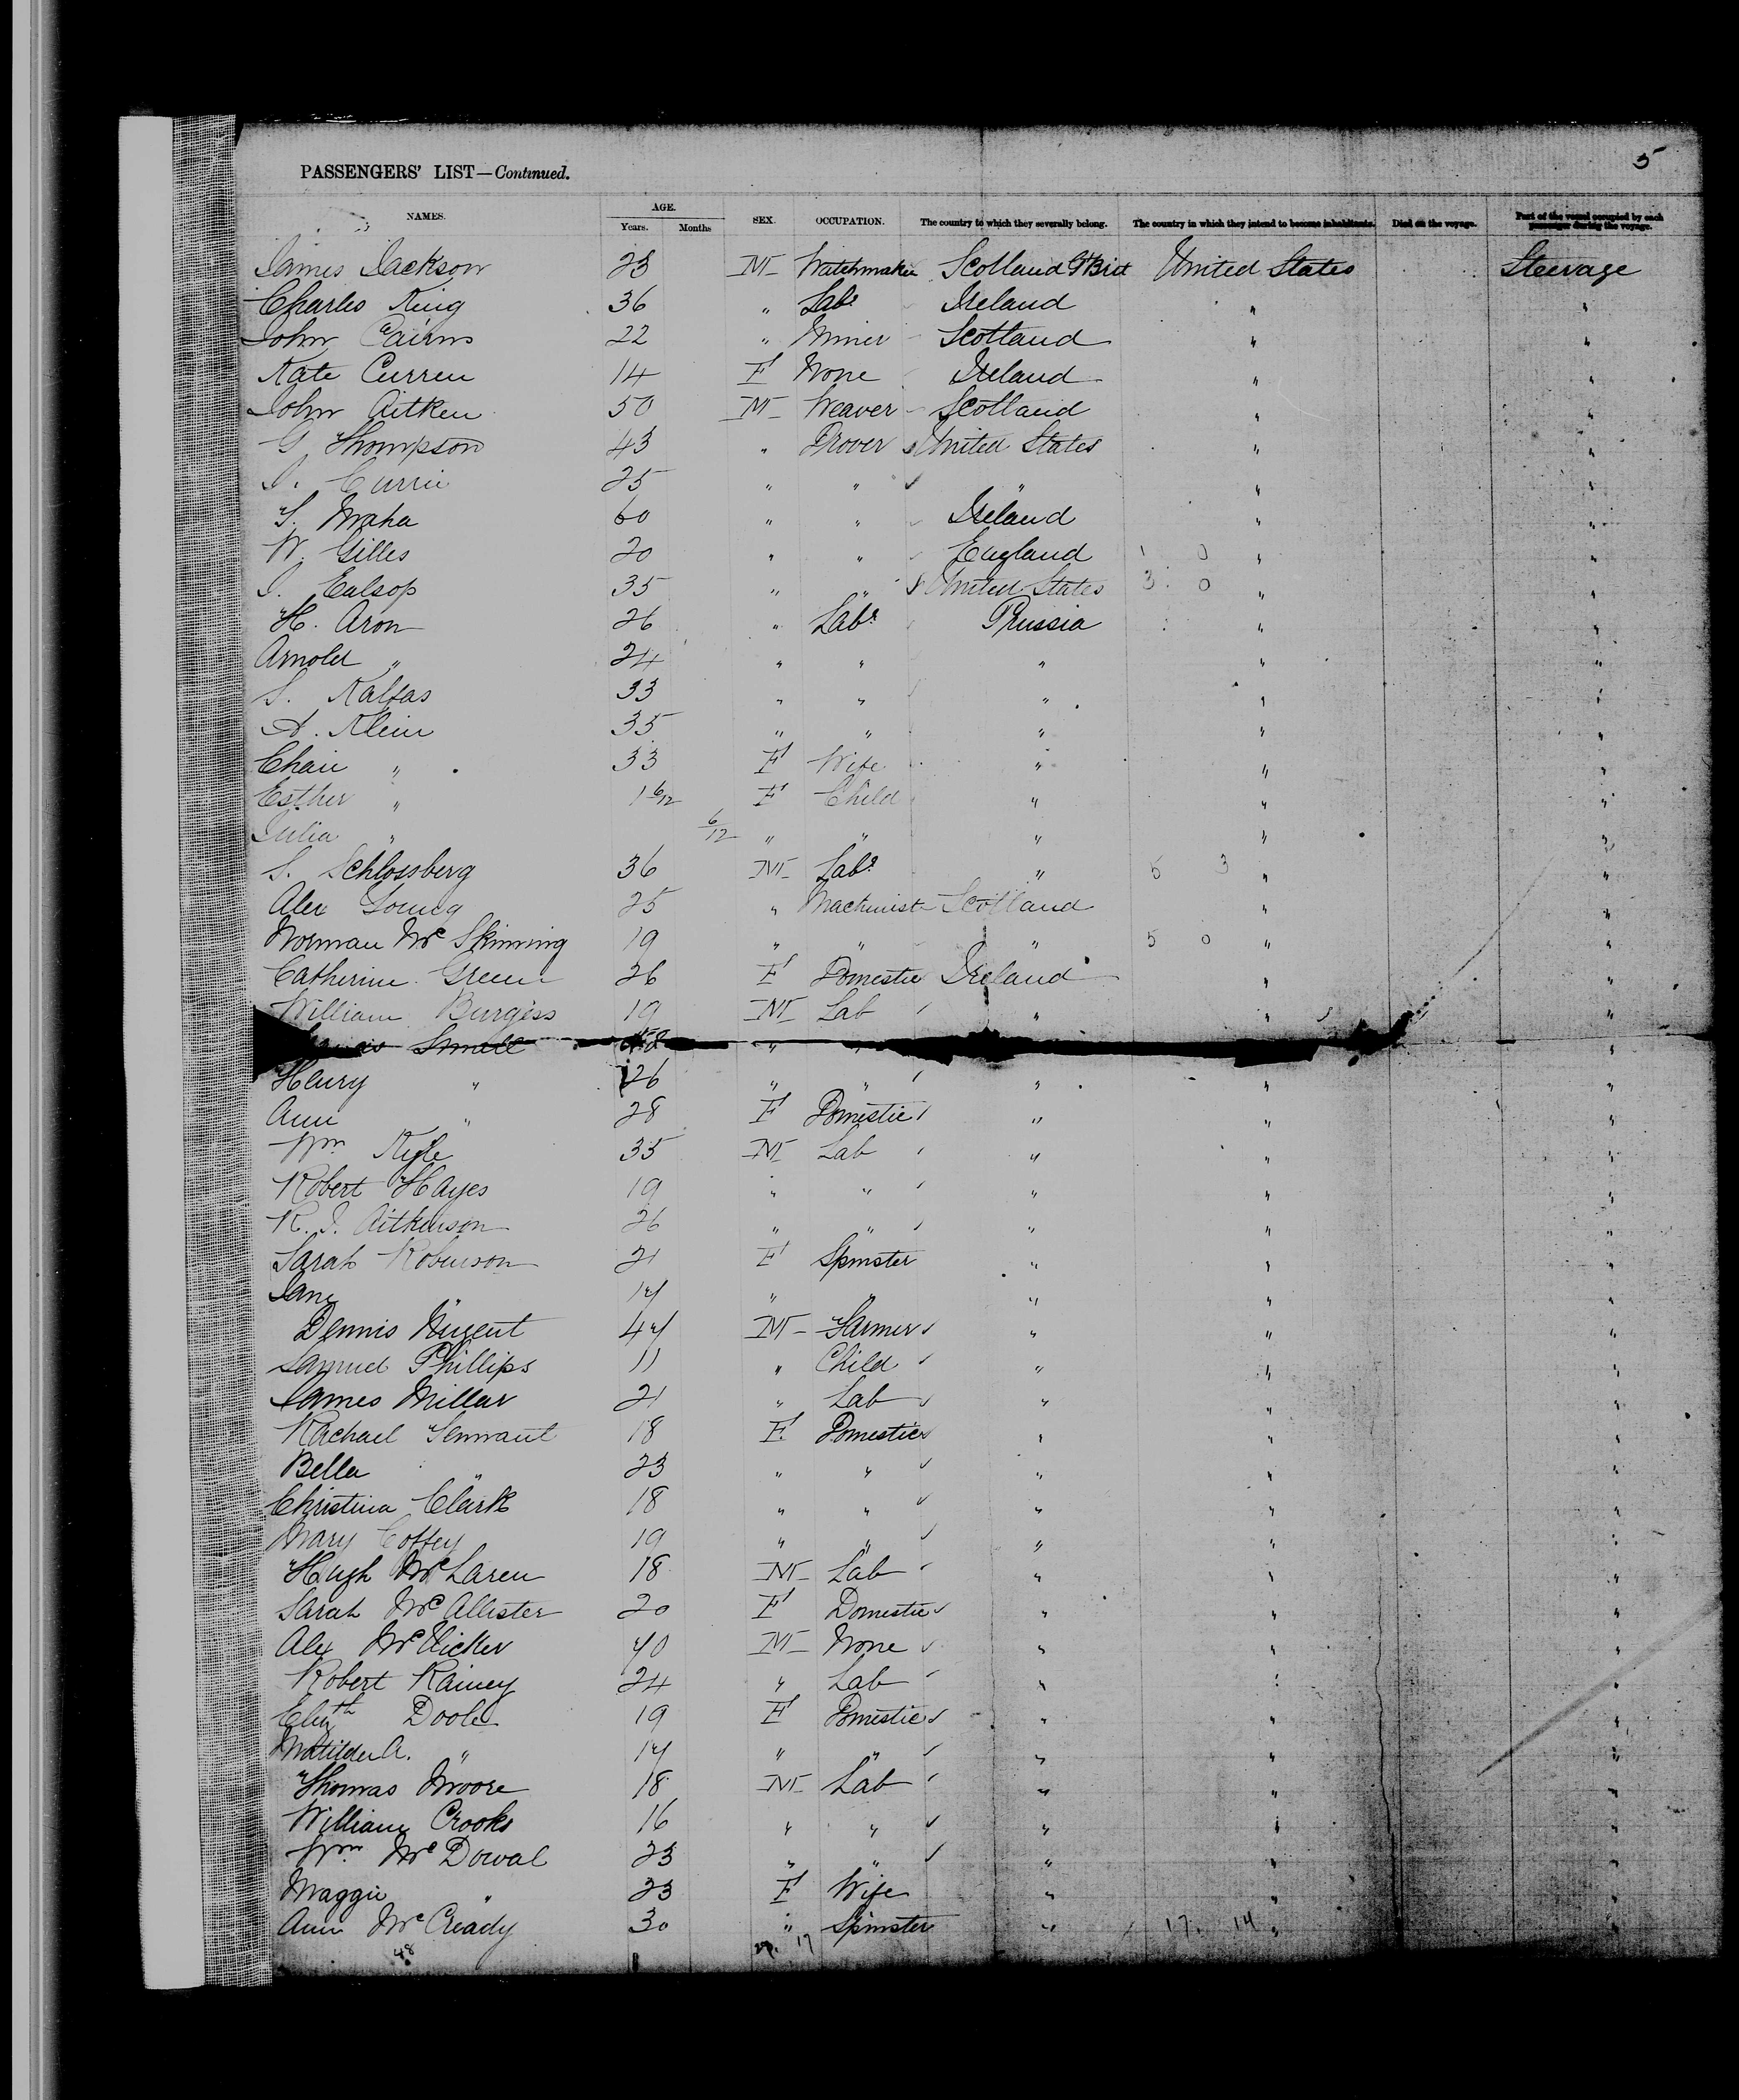 5
PASSENGERS' LIST—Continued.
NAMES. AGE. Years. Months SEX. OCCUPATION. The country to which they severally belong. The country in which they intend to become inhabitants. Died on the voyage. Part of the vessel occupied by each passenger during the voyage.
James Jackson 23 M Watchmaker Scotland G Brit United States Steerage
Charles King 36 " Labr Ireland " "
John Cairns 22 " Miner Scotland " "
Kate Curren 14 F None Ireland " "
John Aitken 50 M Weaver Scotland " "
G Thompson 43 " Drover United States " "
J. Currie 25 " " " " "
S. Maha 60 " " Ireland " "
W. Gilles 20 " " England 1 0 " "
J. Ealsop 35 " " United States 3 0 " "
H. Aron 26 " Labr Prussia " "
Arnold " 24 " " " " "
S. Kalfas 33 " " " " "
A. Klein 35 " " " " "
Chaie " 33 F Wife " " "
Esther " 1 6/12 F Child " " "
Julia " 6/12 " " " " "
S. Schlossberg 36 M Labr " 5 3 " "
Alex Young 25 " Machinist Scotland " "
Norman Mc Skinning 19 " " " 5 0 " "
Catherine Green 26 F Domestic Ireland " "
William Burgess 19 M Lab " " "
" "
Henry " 26 " " " " "
Ann " 28 F Domestic " " "
Wm Kyle 35 M Lab " " "
Robert Hayes 19 " " " " "
R. J. Aitkenson 26 " " " " "
Sarah Robinson 21 F Spinster " " "
Jane " 17 " " " " "
Dennis Nugent 47 M Farmer " " "
Samuel Phillips 11 " Child " " "
James Millar 21 " Lab " " "
Rachael Tennant 18 F Domestic " " "
Bella " 23 " " " " "
Christina Clark 18 " " " " "
Mary Coffey 19 " " " " "
Hugh McLaren 18 M Lab " " "
Sarah McAllister 20 F Domestic " " "
Alex McVicker 70 M None " " "
Robert Rainey 24 " Lab " " "
Elizth Doole 19 F Domestic " " "
Matilda A. " 17 " " " " "
Thomas Moore 18 M Lab " " "
William Crooks 16 " " " " "
Wm McDowal 23 " " " " "
Maggie " 23 F Wife " " "
Ann McCready 30 " Spinster " 17. 14 " "
48 17